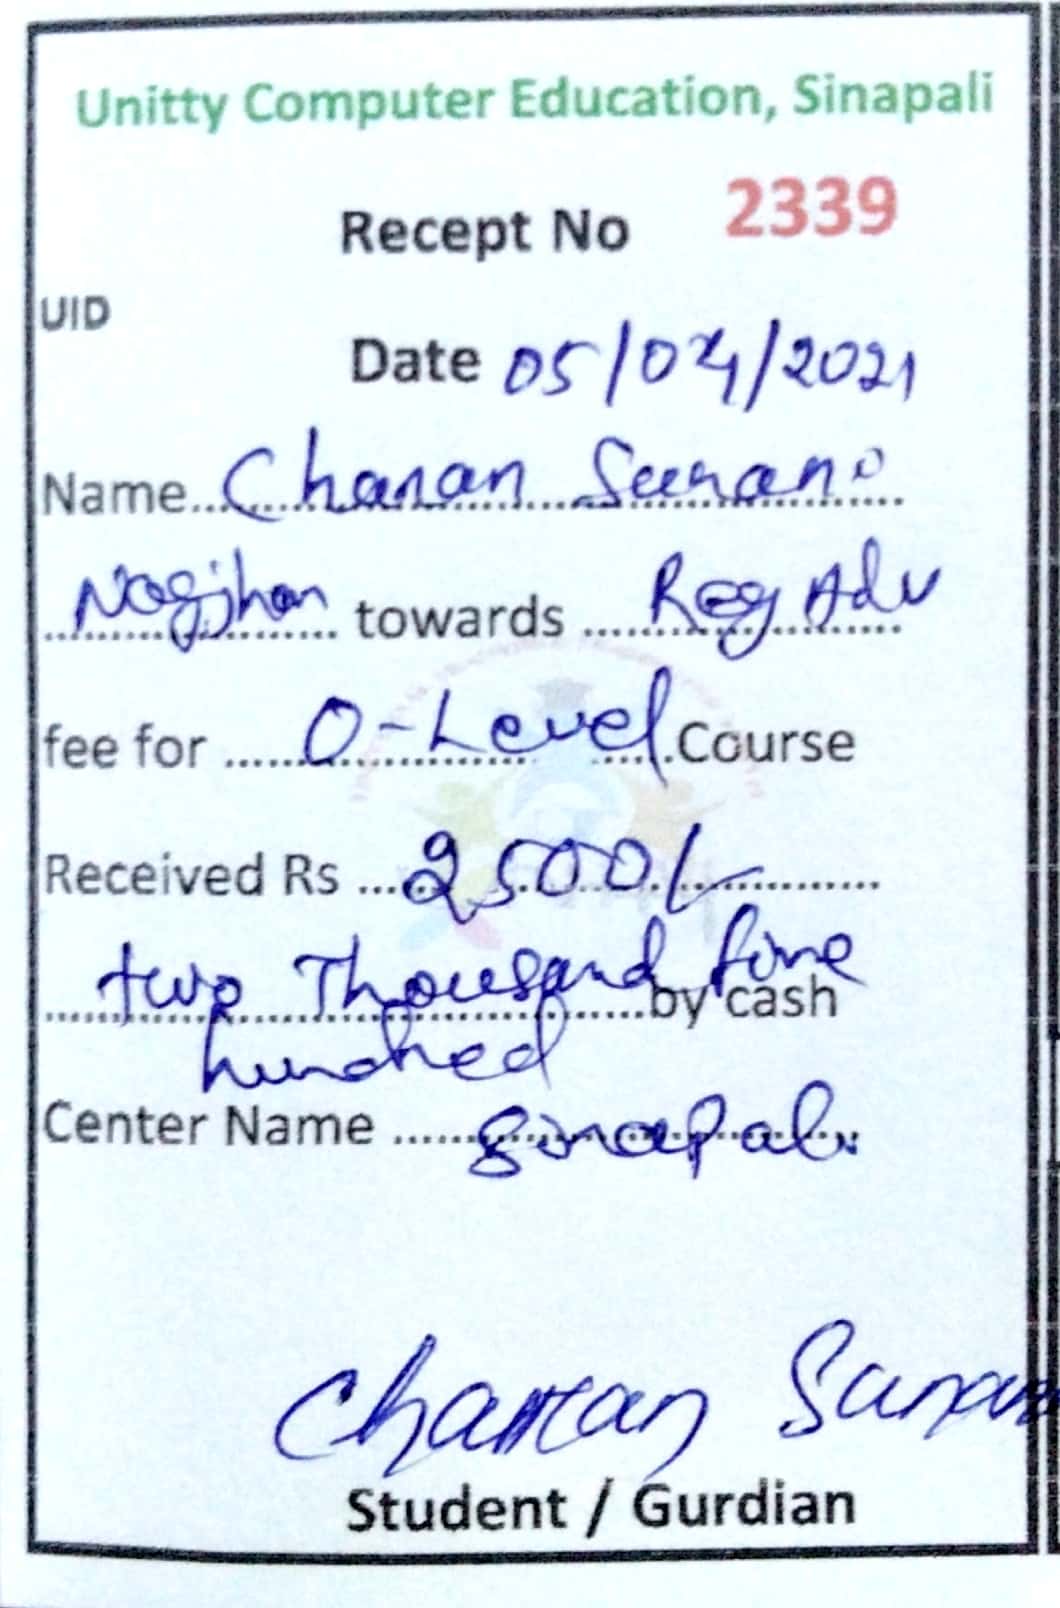 Unitty Computer Education, Sinapali
Recept No 2339
UID
Date 05/04/2021
Name...Charan Surani
Nagjhar towards Reg Adv
fee for O-Level Course
Received Rs 2500/-
two Thousand five
by cash
hundred
Center Name Sinapali
Charan Sunani
Student / Gurdian